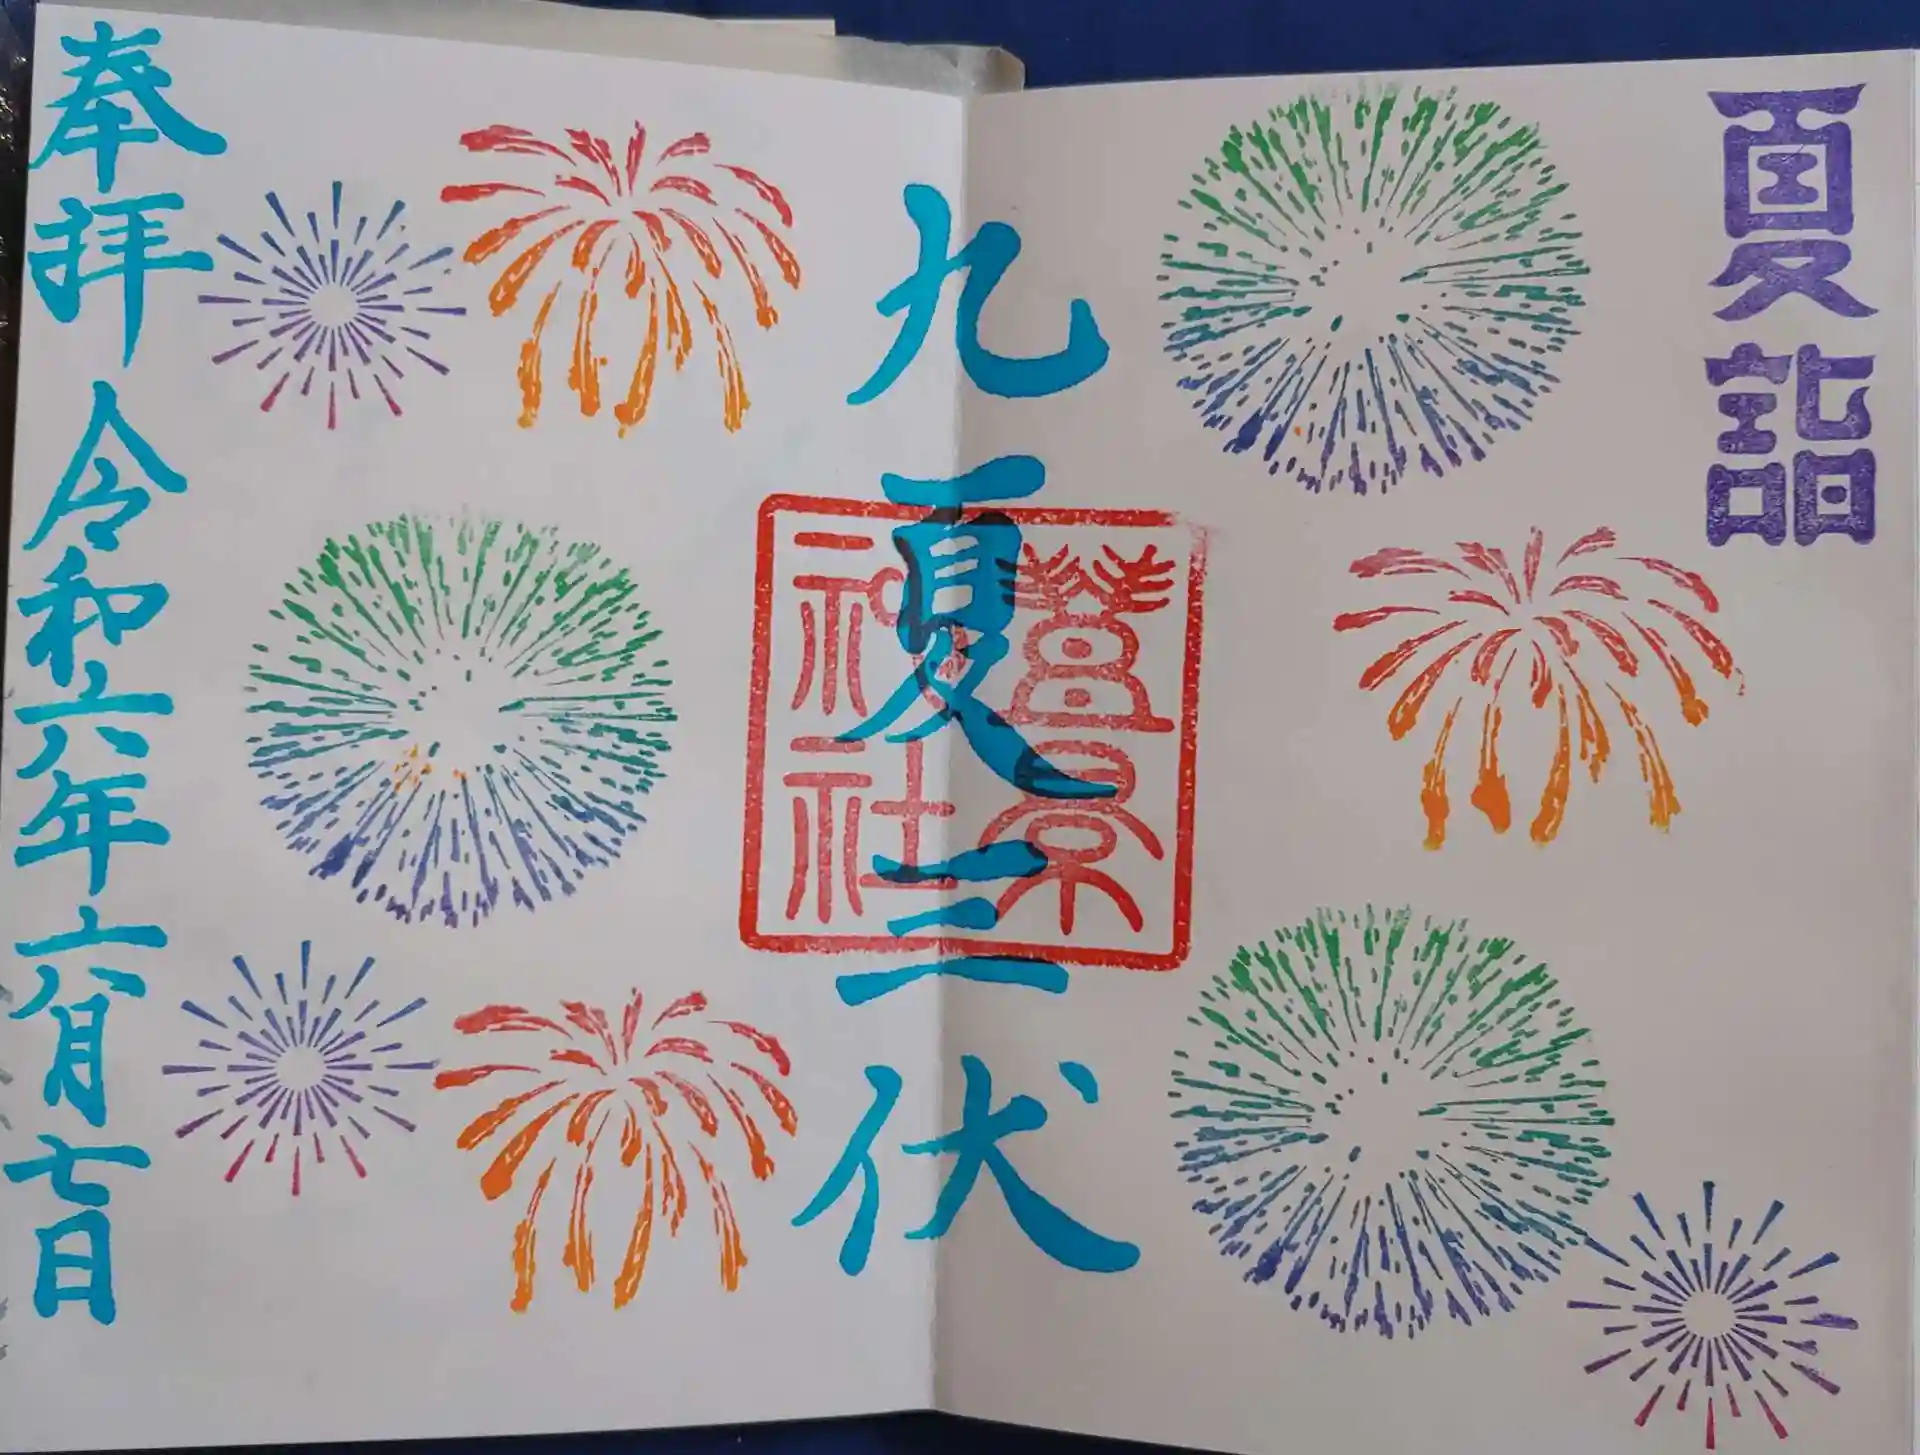 夏詣
九夏三伏
豊景
神社
奉拝 令和六年六月七日